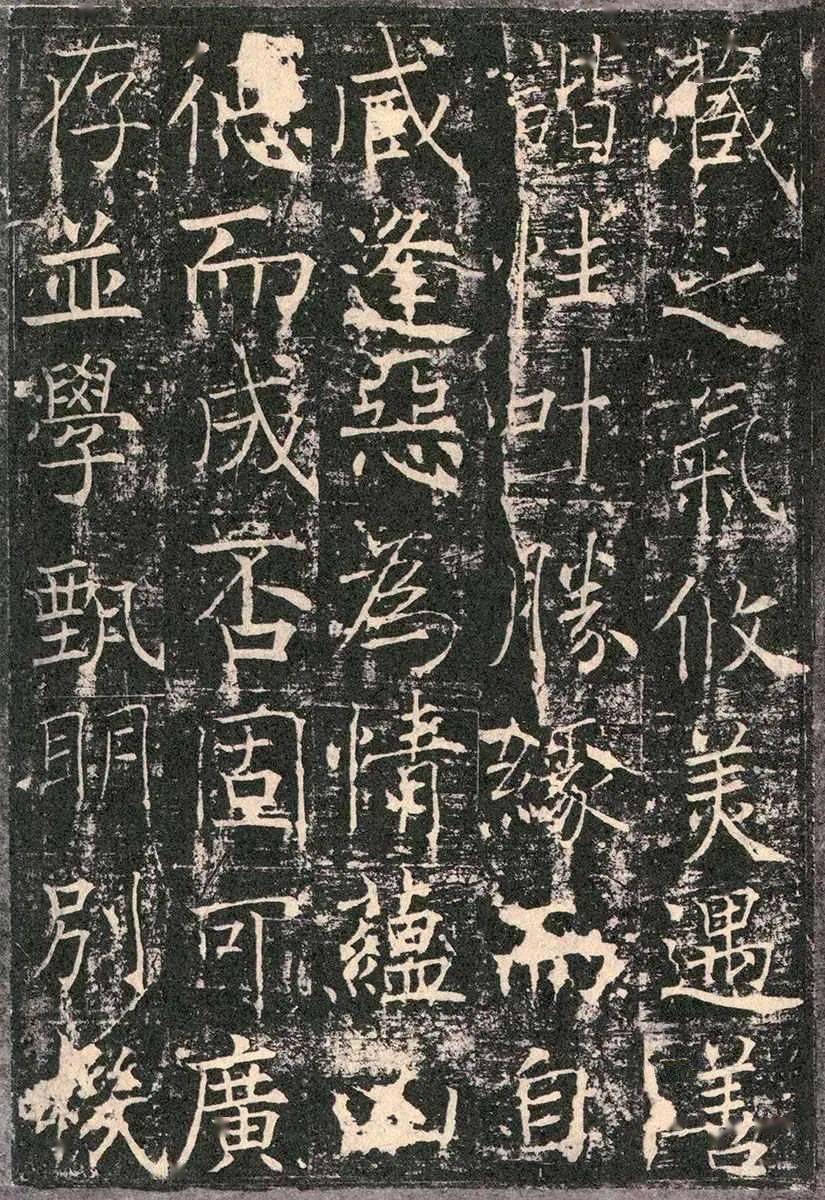 藏之氣攸美遇善
諧性叶勝緣而自
咸逢惡為情蘊凶
低而成否固可廣
存並學甄明別機